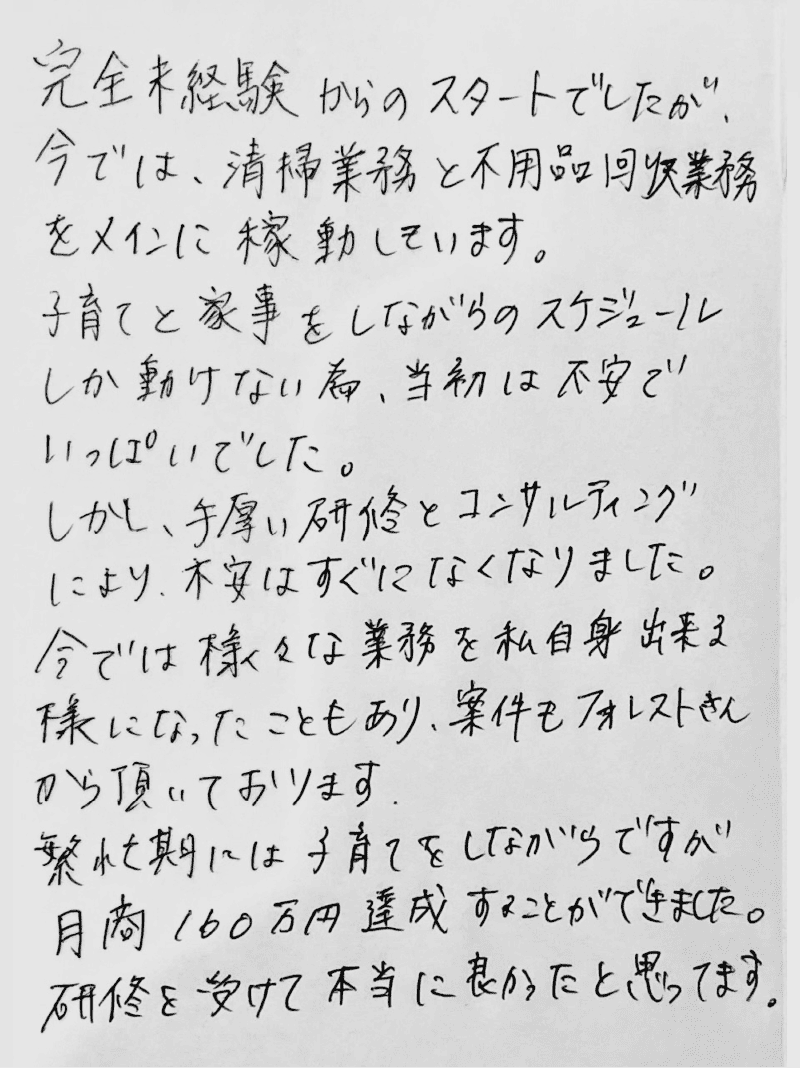 完全未経験からのスタートでしたが、
今では、清掃業務と不用品回収業務
をメインに稼動しています。
子育てと家事をしながらのスケジュール
しか動けない為、当初は不安で
いっぱいでした。
しかし、手厚い研修とコンサルティング
により、不安はすぐになくなりました。
今では様々な業務を私自身出来る
様になったこともあり、案件もフォレストさん
から頂いております.
繁忙期には子育てをしながらですが
月商160万円達成することができました。
研修を受けて本当に良かったと思ってます。